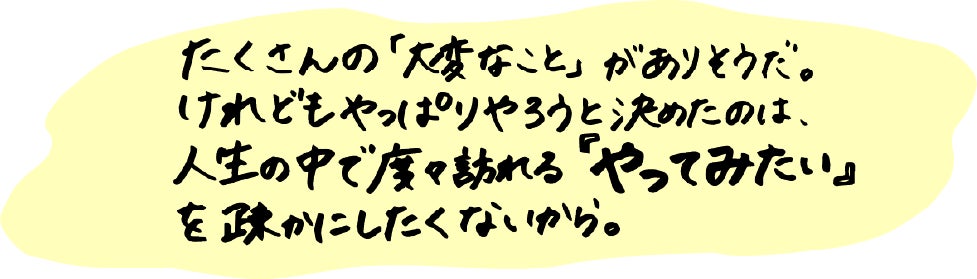 たくさんの「大変なこと」がありそうだ。
けれどもやっぱりやろうと決めたのは、
人生の中で度々訪れる『やってみたい』
を疎かにしたくないから。